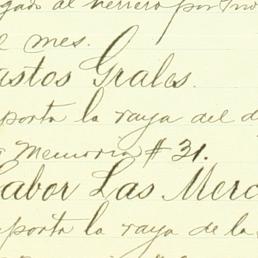 gado al herrero por
l mes.
astos Grales.
porta la raya del d
Memoria # 31.
Labor Las Merc
porta la raya de la